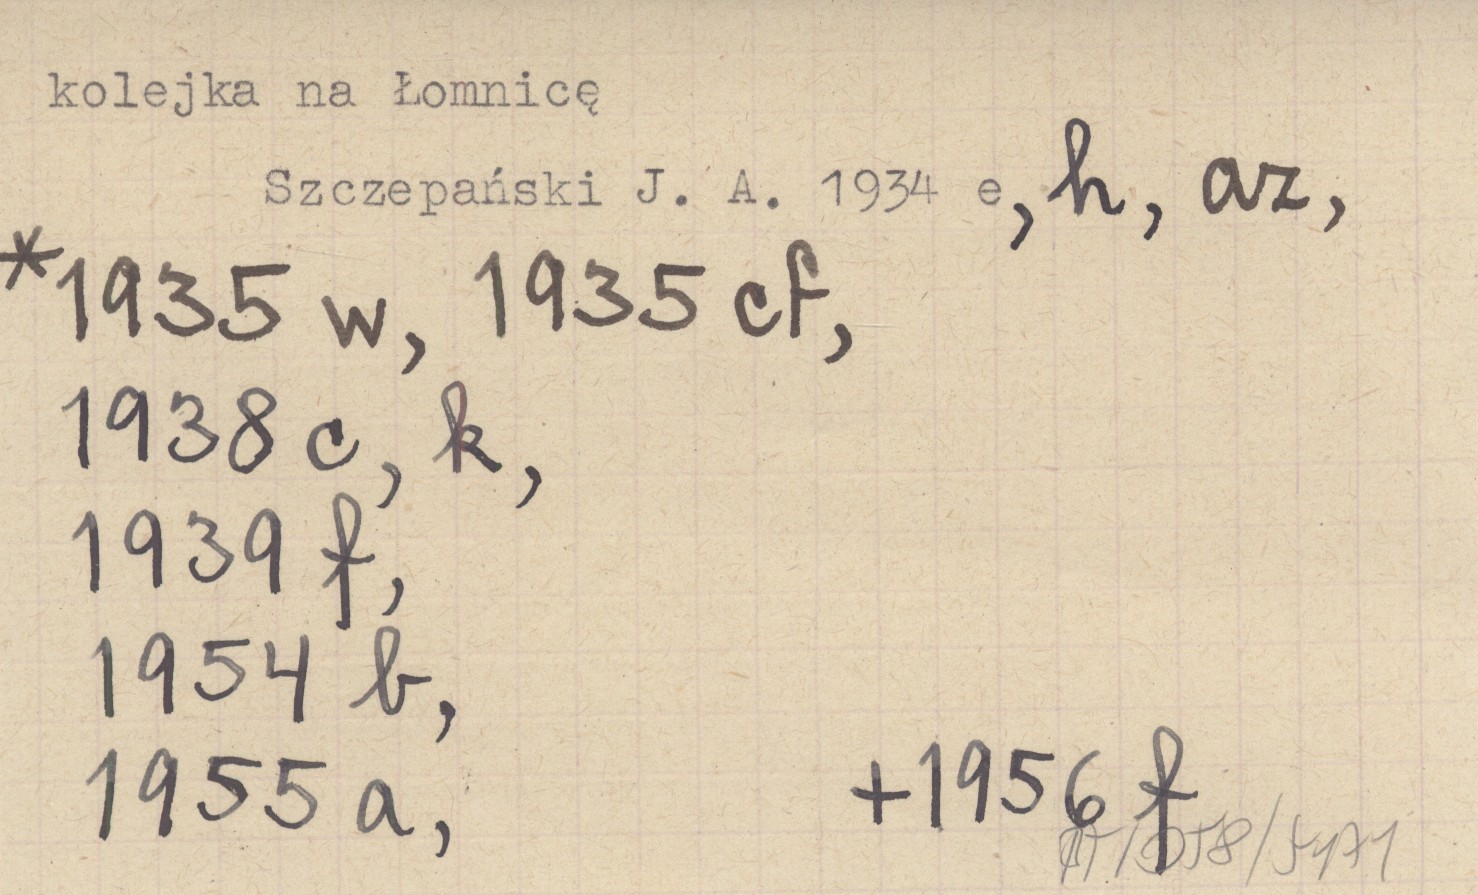 kolejka na Łomnicę
Szczepański J. A. 1934 e, h, az,
*1935 w, 1935 cf,
1938 c, k,
1939 f,
1954 b,
1955 a,
+1956 f